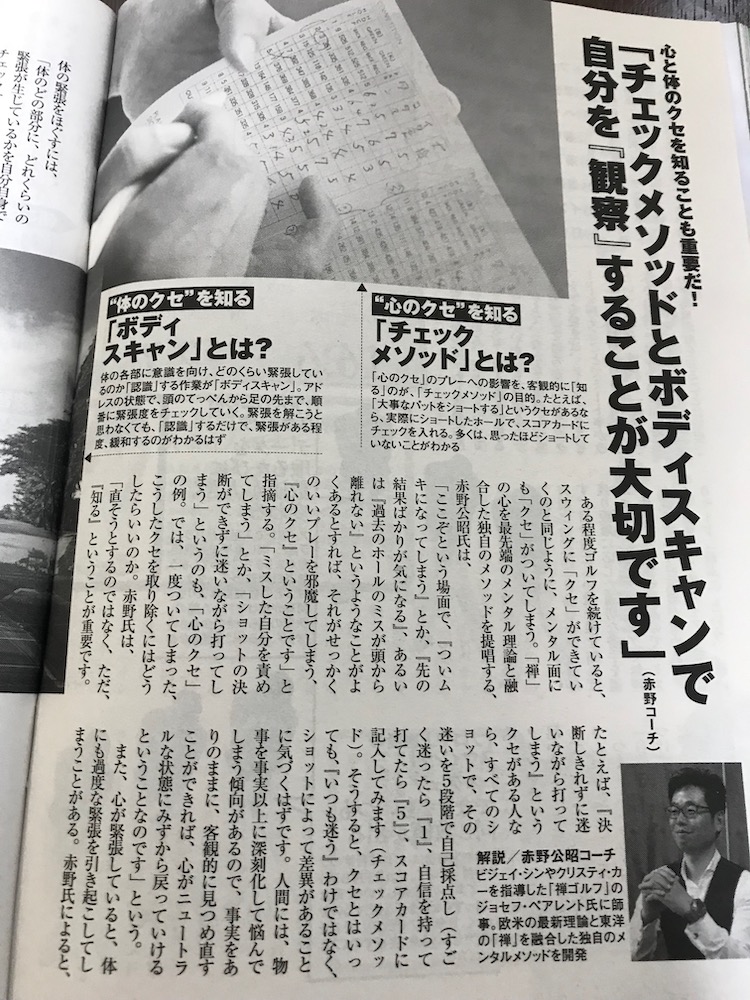 心と体のクセを知ることも重要だ！
「チェックメソッドとボディスキャンで
自分を『観察』することが大切です」
（赤野コーチ）
“心のクセ”を知る
「チェック
メソッド」とは？
「心のクセ」のプレーへの影響を、客観的に「知
る」のが、「チェックメソッド」の目的。たとえば、
「大事なパットをショートする」というクセがあるな
ら、実際にショートしたホールで、スコアカードに
チェックを入れる。多くは、思ったほどショートして
いないことがわかる
“体のクセ”を知る
「ボディ
スキャン」とは？
体の各部に意識を向け、どのくらい緊張してい
るのか「認識」する作業が「ボディスキャン」。アド
レスの状態で、頭のてっぺんから足の先まで、順
番に緊張度をチェックしていく。緊張を解こうと
思わなくても、「認識」するだけで、緊張がある程
度、緩和するのがわかるはず
ある程度ゴルフを続けていると、
スウィングに「クセ」ができてい
くのと同じように、メンタル面に
も「クセ」がついてしまう。「禅」
の心を最先端のメンタル理論と融
合した独自のメソッドを提唱する、
赤野公昭氏は、
「ここぞという場面で、『ついム
キになってしまう』とか、『先の
結果ばかりが気になる』、あるい
は『過去のホールのミスが頭から
離れない』というようなことがよ
くあるとすれば、それがせっかく
のいいプレーを邪魔してしまう、
『心のクセ』ということです」と
指摘する。「ミスした自分を責め
てしまう」とか、「ショットの決
断ができずに迷いながら打ってし
まう」というのも、「心のクセ」
の例。では、一度ついてしまった、
こうしたクセを取り除くにはどう
したらいいのか。赤野氏は、
「直そうとするのではなく、ただ、
『知る』ということが重要です。
たとえば、『決
断しきれずに迷
いながら打って
しまう』という
クセがある人な
ら、すべてのシ
ョットで、その
迷いを5段階で自己採点し（すご
く迷ったら『1』、自信を持って
打てたら『5』）、スコアカードに
記入してみます（チェックメソッ
ド）。そうすると、クセとはいっ
ても、『いつも迷う』わけではなく、
ショットによって差異があること
に気づくはずです。人間には、物
事を事実以上に深刻化して悩んで
しまう傾向があるので、事実をあ
りのままに、客観的に見つめ直す
ことができれば、心がニュートラ
ルな状態にみずから戻っていける
ということなのです」という。
また、心が緊張していると、体
にも過度な緊張を引き起こしてし
まうことがある。赤野氏によると、
解説／赤野公昭コーチ
ビジェイ・シンやクリスティ・カ
ーを指導した「禅ゴルフ」の
ジョセフ・ペアレント氏に師
事。欧米の最新理論と東洋
の「禅」を融合した独自のメ
ンタルメソッドを開発
体の緊張をほぐすには、
「体のどの部分に、どれくらいの
緊張が生じているかを自分自身で